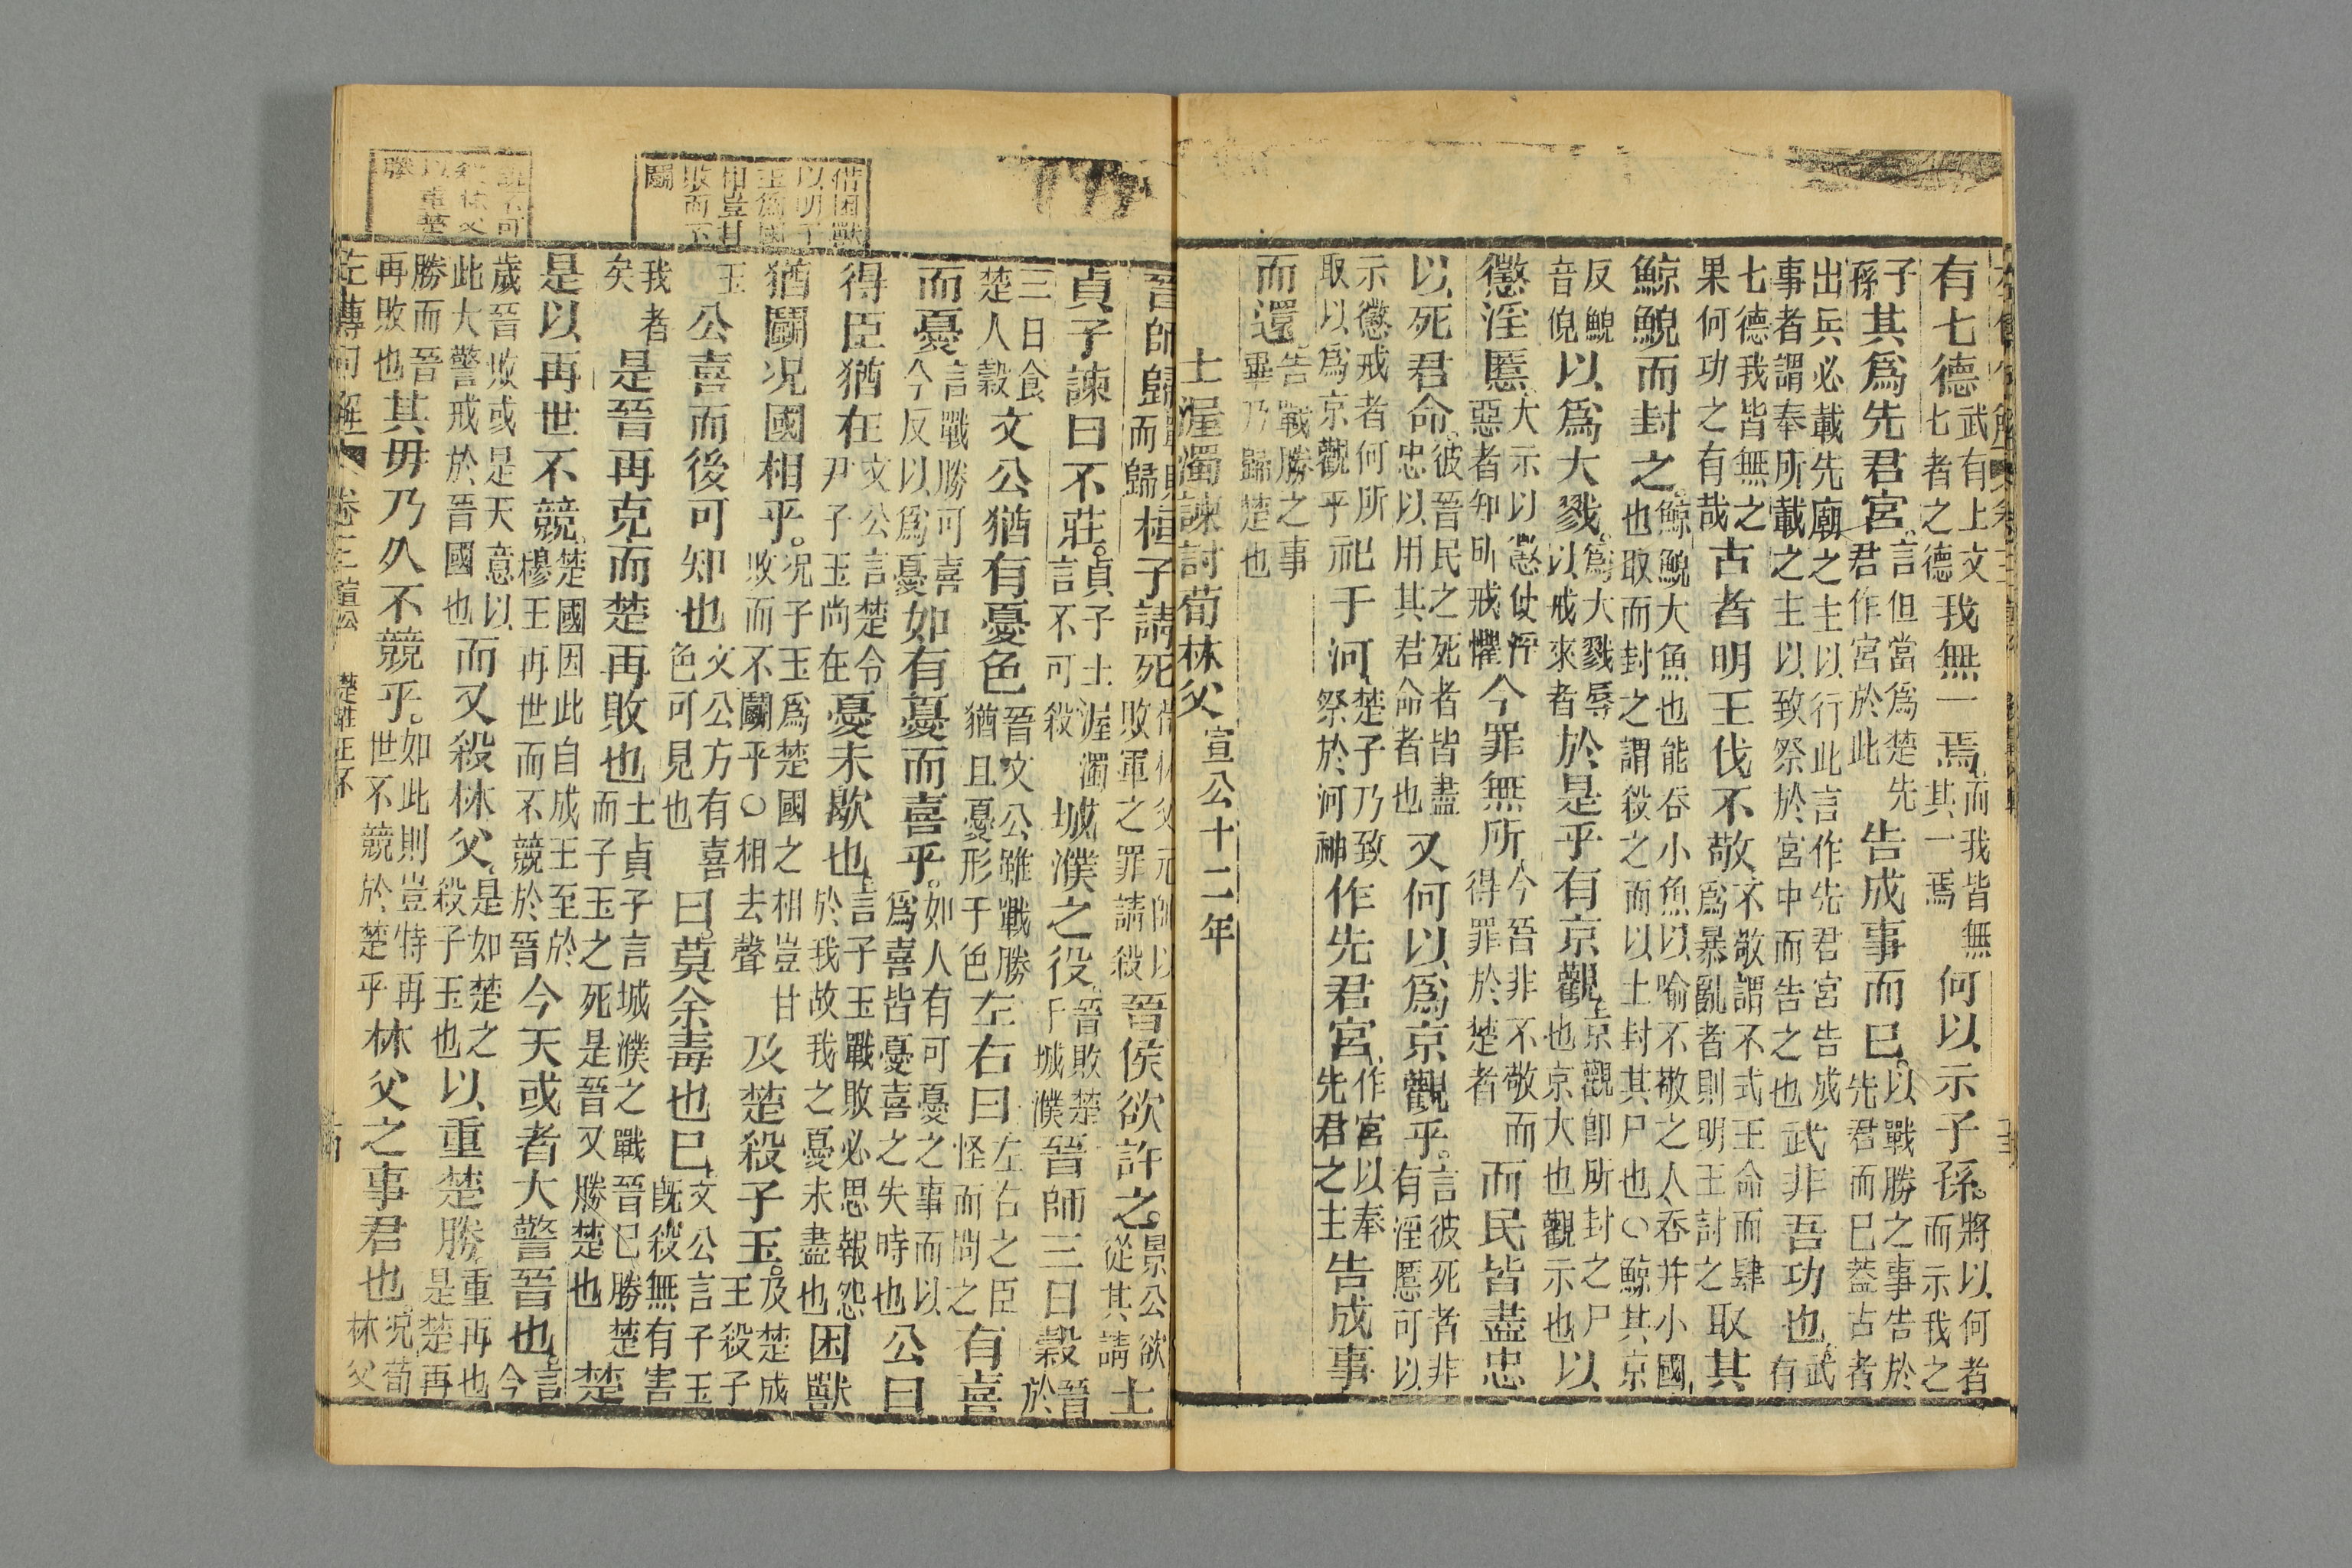 有七德武有上文七者之德我無一焉而我皆無其一焉何以示子孫將以何者而示我之
子孫其爲先君宮言但當爲楚先君作宮於此告成事而已以戰勝之事告於先君而已葢古者
出兵必載先廟之主以行此言作先君宮告成事者謂奉所載之主以致祭於宮中而告之也武非吾功也武有
七德我皆無之果何功之有哉古者明王伐不敬不敬謂不式王命而肆爲暴亂者則明王討之取其
鯨鯢而封之鯨鯢大魚也能吞小魚以喻不敬之人吞并小國也取而封之謂殺之而以土封其尸也○鯨其京
反鯢音倪以爲大戮爲大戮辱以戒來者於是乎有京觀京觀卽所封之尸也京大也觀示也以
懲淫慝大示以懲使淫惡者知所戒懼今罪無所今晉非不敬而得罪於楚者而民皆盡忠
以死君命彼晉民之死者皆盡忠以用其君命者也又何以爲京觀乎言彼死者非有淫慝可以
示懲戒者何所取以爲京觀乎祀于河楚子乃致祭於河神作先君宮作宮以奉先君之主告成事
而還告戰勝之事畢乃歸楚也
士渥濁諫討荀林父宣公十二年
借困獸以明子玉爲國相豈甘敗而不鬭
晉師歸戰敗而歸桓子請死荀林父元帥以敗軍之罪請殺晉侯欲許之景公欲從其請士
貞子諫曰不可貞子士渥濁言不可殺城濮之役晉敗楚于城濮晉師三日穀晉於
三日食楚人穀文公猶有憂色晉文公雖戰勝猶且憂形于色左右曰左右之臣怪而問之有喜
而憂言戰勝可喜今反以爲憂如有憂而喜乎如人有可憂之事而以爲喜皆憂喜之失時也公曰
得臣猶在文公言楚令尹子玉尚在憂未歇也言子玉戰敗必思報怨於我故我之憂未盡也困獸
猶鬭况國相乎况子玉爲楚國之相豈甘敗而不鬭乎○相去聲及楚殺子玉及楚成王殺子
玉公喜而後可知也文公方有喜色可見也曰莫余毒也已文公言子玉旣殺無有害
我者矣是晉再克而楚再敗也士貞子言城濮之戰晉已勝楚而子玉之死是晉又勝楚也楚
是以再世不競楚國因此自成王至於穆王再世而不競於晉今天或者大警晉也言今
歲晉敗或是天意以此大警戒於晉國也而又殺林父是如楚之殺子玉也以重楚勝重再也是楚再
勝而晉再敗也其毋乃久不競乎如此則豈特再世不競於楚乎林父之事君也况荀林父
左傳句解 卷三宣公